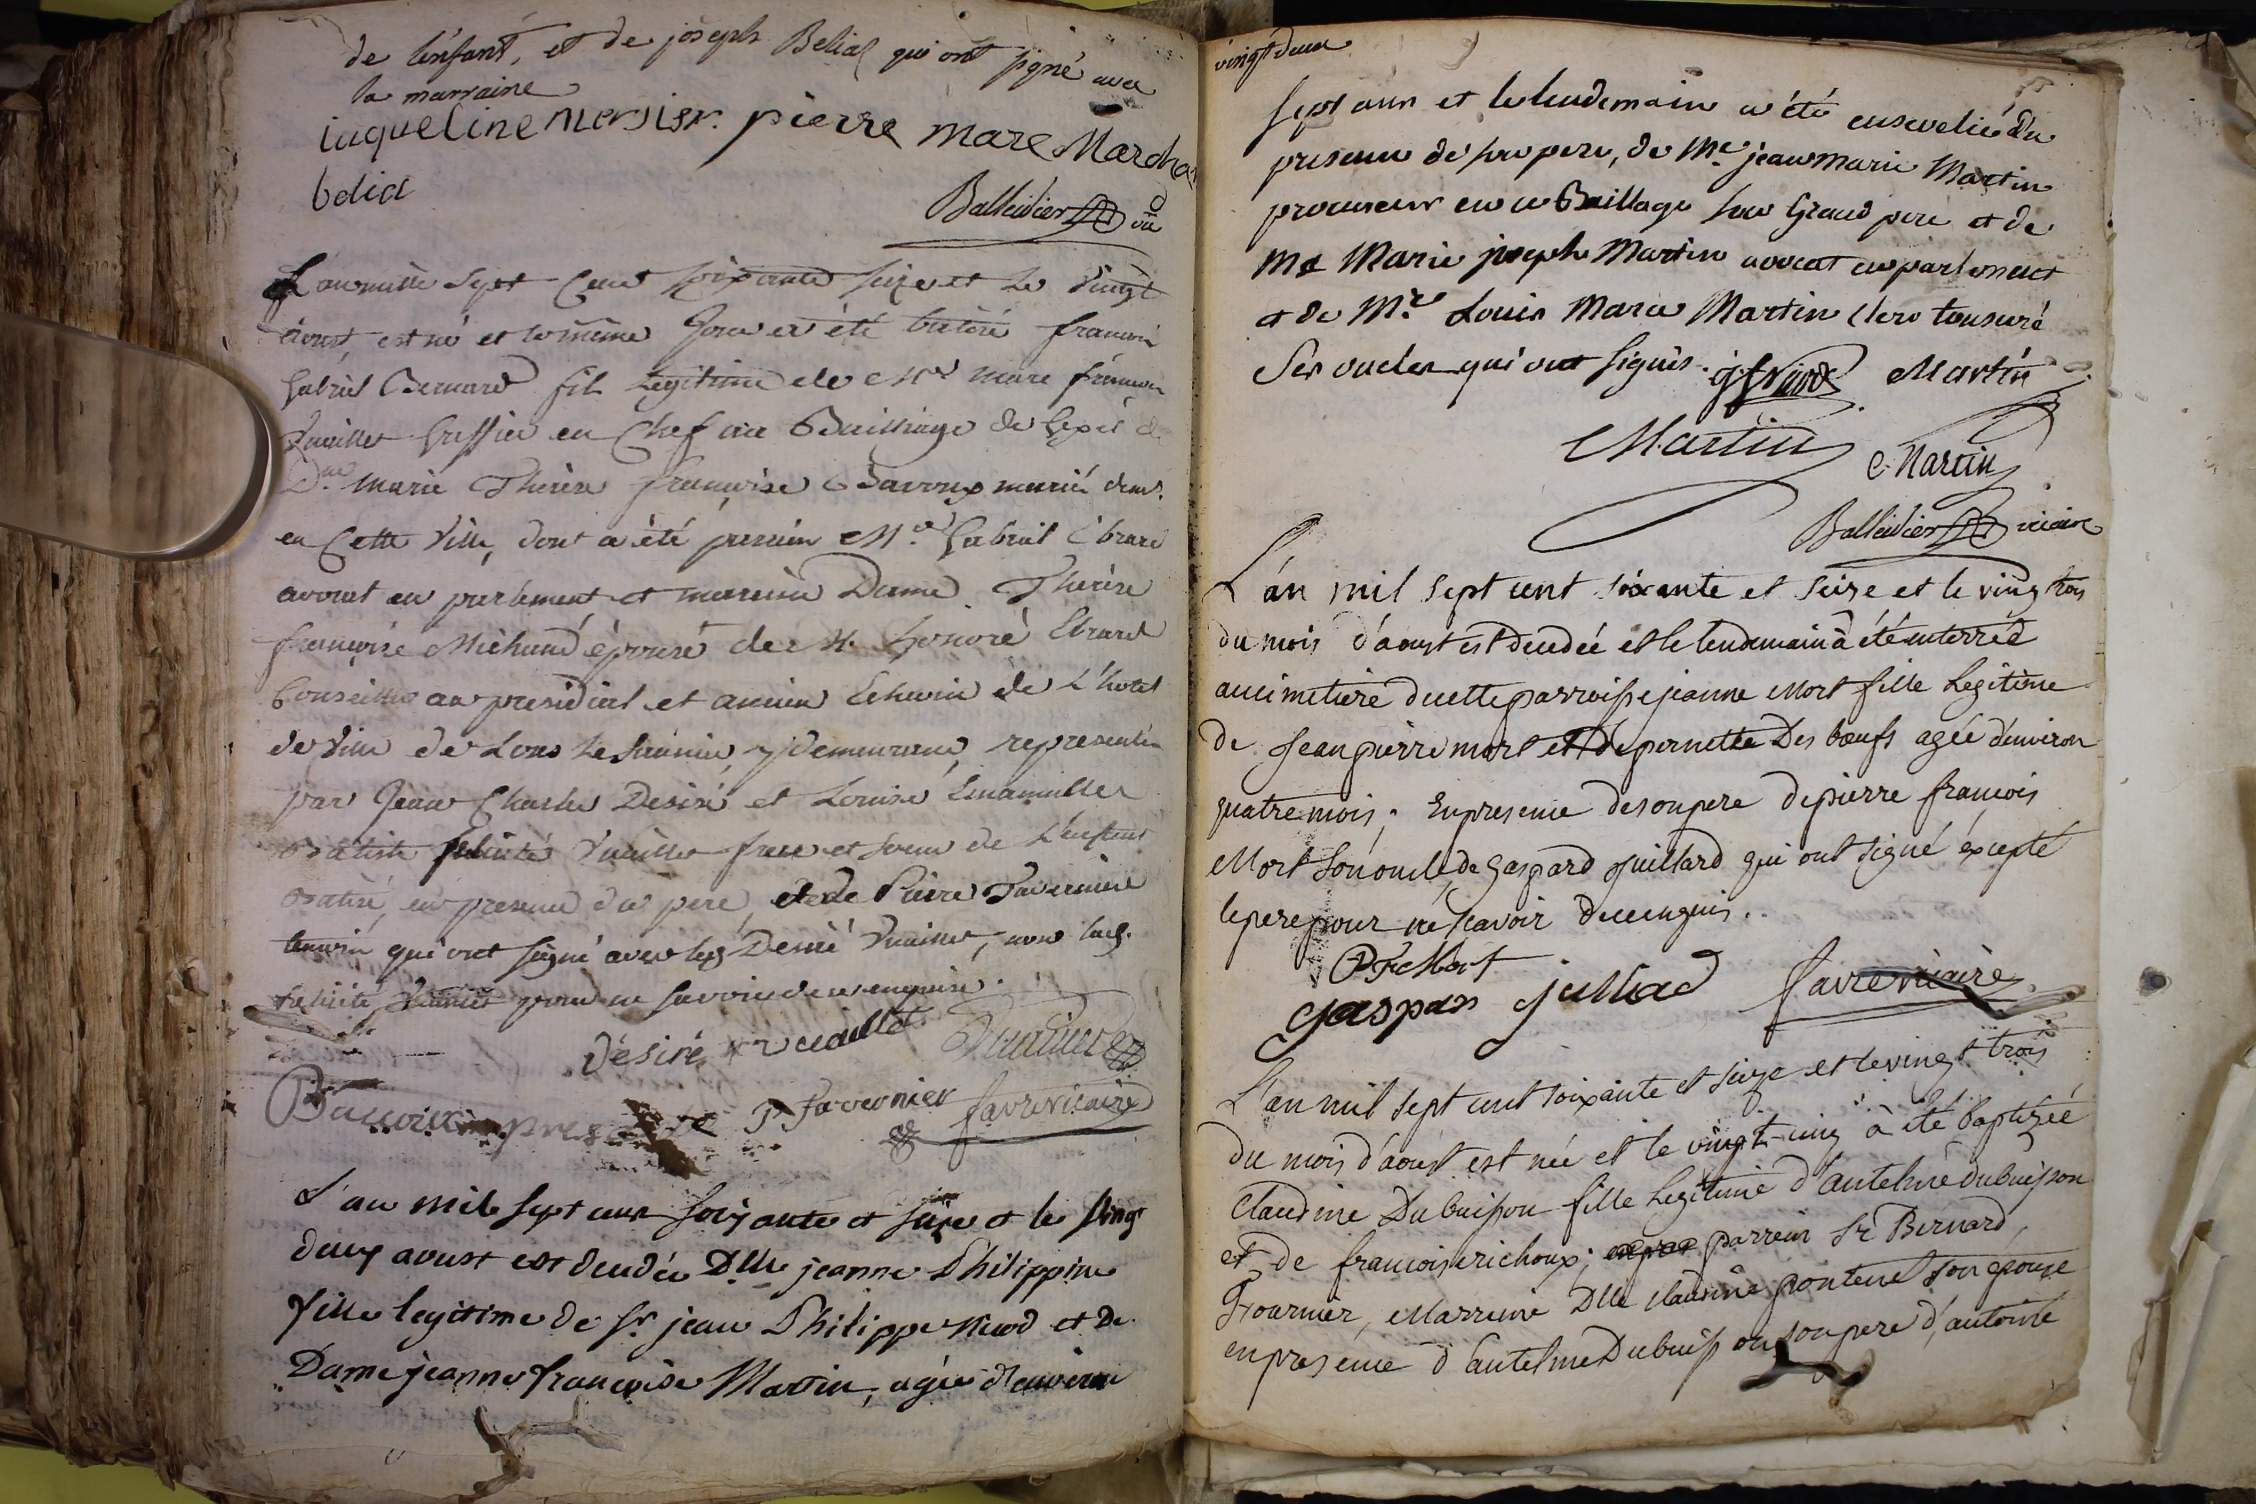 de l'enfant, et de joseph Beliat qui ont signé avec
la marraine
iaqueline Mersier. pierre marc Marcha
belia
Balleidier vic
L'an mille Sept Cent Soixante seize et le vingt
aoust, est né et le même Jour a été batisé françois
Gabriel Bernard fils Legitime de Mr marc françois
Vuaillet Greffier en Chef au Bailliage de Gex et de
Dme marie Therese françoise Bavoux mariés dem.t
en Cette Ville, dont a été parrain Mr Gabriel Ebrard
avocat en parlement et marraine Dame Therese
françoise Michaud épouse de M. honoré Ebrard
Conseiller au presidial et ancien Echevin de L'hotel
de Ville de Lons le Saunier, y demeurant, representés
par Jean Charles Desiré et Louise
Batiste felicité Vuaillet frere et soeur de L'enfant
Batisé, en presence du pere et de Pierre Tavernier
temoin qui ont signé avec led. Desiré Vuaillet, non lad.
felicité Vuaillet pour ne savoir de ce enquise.
Désiré vuaillet Vuaillet
Bavoux presente P Tavernier favre vicaire
L'an mil sept cent soixante et seize et le vingt
deux aoust est decedée Dlle jeanne Philippine
fille legitime de Sr jean Philippe Nicod et de
Dame jeanne françoise Martin, agée d'environ
vingt deux
sept ans et le lendemain a été ensevelie en
presence de son pere, de Me jean marie Martin
procureur en ce Baillage son Grand pere et de
Me Marie joseph Martin avocat en parlement
et de Mre Louis Marie Martin Clerc tonsuré
Ses oncles qui ont signés. Martin
Martin Martin
Balleidier vicaire
L'an mil sept cent soixante et seize et le vingtrois
du mois d'aoust est decedée et le lendemain à été enterrée
au cimetiere de cette parroisse jeanne Mort fille Legitime
de Jean pierre mort et de pernette Des boeufs agée d'environ
quatre mois; En presence de son pere de pierre françois
Mort son oncle, de Gaspard Juillard qui ont signé éxcepté
le pere pour ne scavoir de ce enquis.
P Fc Mort
gaspar julliad favre vicaire
L'an mil sept cent soixante et seize et le vingt trois
du mois d'aoust est née et le vingt-cinq à été baptizée
Claudine Dubuisson fille Legitime d'antelme dubuisson
et de francoise richoux; parrein Sr Bernard
fournier, Marreine Dlle claudine pontenel son epouse
en presence d'antelme Dubuisson son pere d'antoine